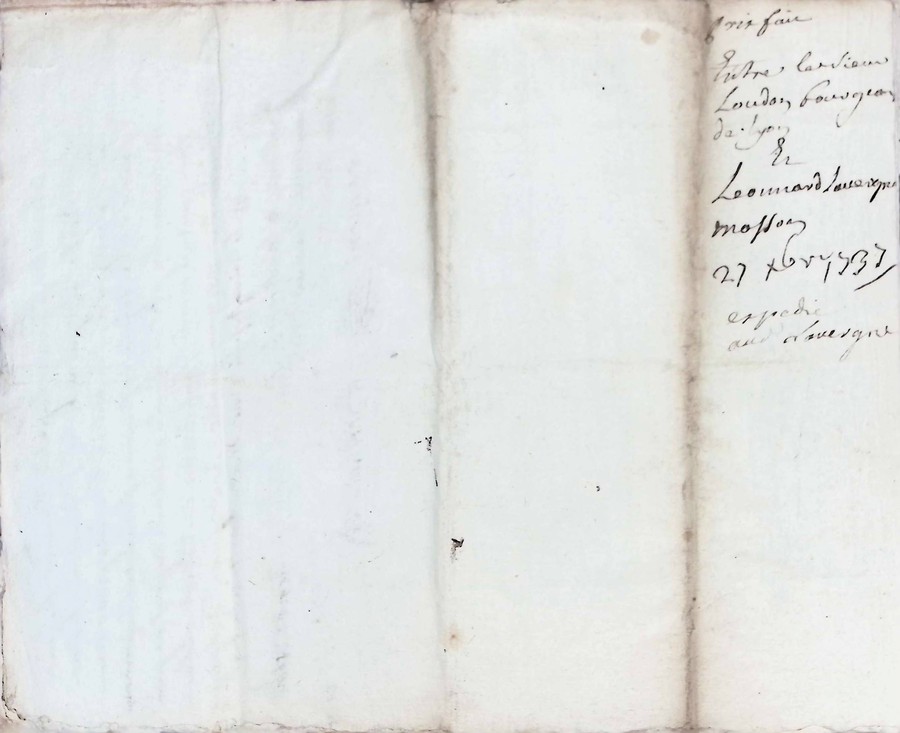 prix fait
Entre le sieur
Loudon bourgeois
de Lyon
Et
Leonnard Lavergne
masson
27 xbre 1737
expedié
aud Lavergne